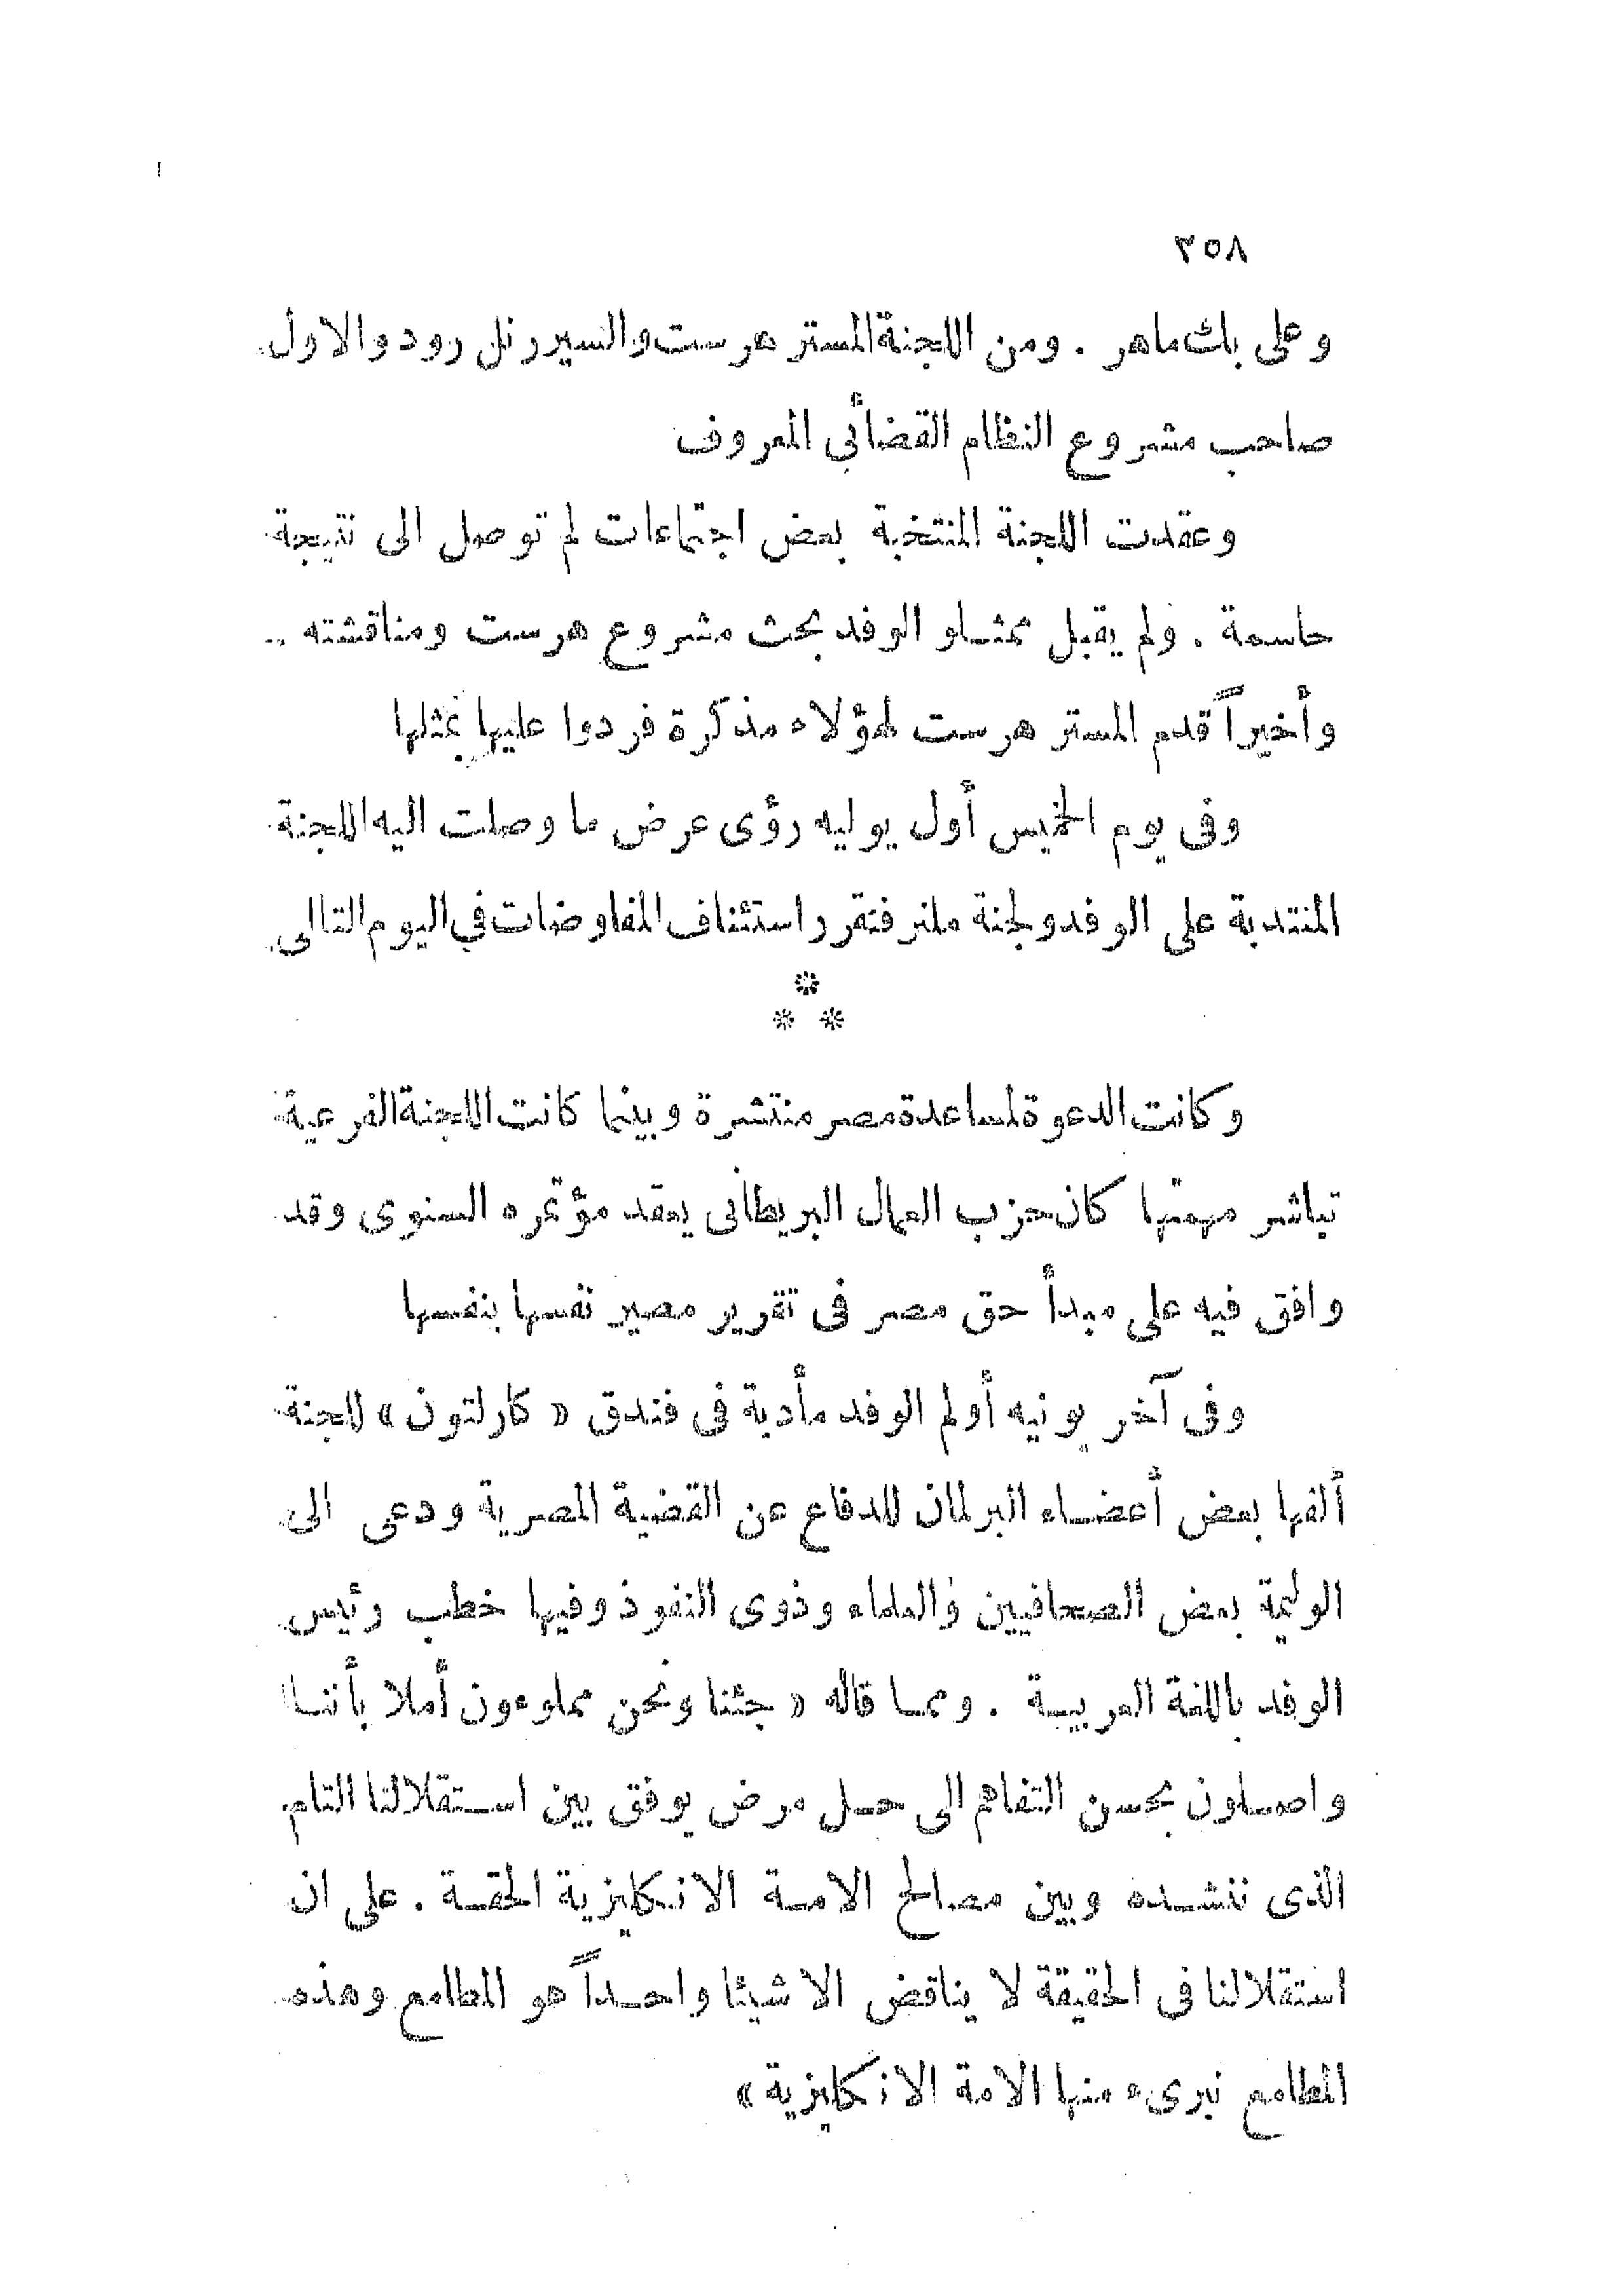 ٢٥٨
وعلى بك ماهر . ومن اللجنة المستر هرست والسير رنل رود والاول
صاحب مشروع النظام القضائى المعروف
وعقدت اللجنة المنتخبة بعض اجتماعات لم توصل الى نتيجة
حاسمة . ولم يقبل ممثلو الوفد بحث مشروع هرست ومناقشته ..
وأخيراً قدم المستر هرست لهؤلاء مذكرة فردوا عليها بمثلها
وفى يوم الخميس أول يوليه رؤى عرض ما وصلت اليه اللجنة
المنتدبة على الوفد ولجنة ملنر فتقرر استئناف المفاوضات في اليوم التالى
*
* *
وكانت الدعوة لمساعدة مصر منتشرة وبينما كانت اللجنة الفرعية
تباشر مهمتها كان حزب العمال البريطانى يعقد مؤتمره السنوى وقد
وافق فيه على مبدأ حق مصر فى تقرير مصير نفسها بنفسها
وفى آخر يونيه أولم الوفد مأدبة فى فندق « كارلتون » للجنة
ألفها بعض أعضاء البرلمان للدفاع عن القضية المصرية ودعى الى
الوليمة بعض الصحافيين والعلماء وذوى النفوذ وفيها خطب رئيس
الوفد باللغة العربية . ومما قاله « جئنا ونحن مملوءون أملا بأننا
واصلون بحسن التفاهم الى حل مرض يوفق بين استقلالنا التام
الذى ننشده وبين مصالح الامة الانكليزية الحقة . على ان
استقلالنا فى الحقيقة لا يناقض الا شيئا واحداً هو المطامع وهذه
المطامع نبرىء منها الامة الانكليزية »